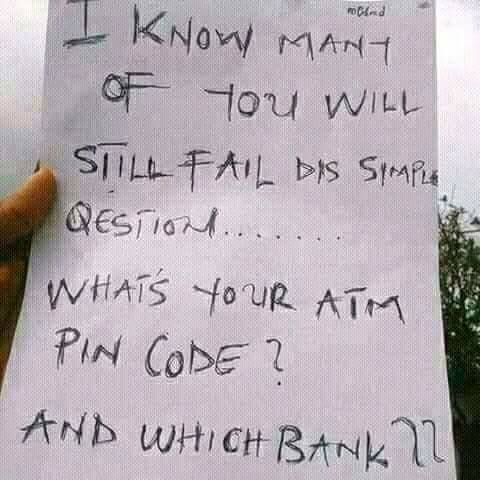 I KNOW MANY
OF YOU WILL
STILL FAIL DIS SIMPLE
QESTION.......
WHAT'S YOUR ATM
PIN CODE?
AND WHICH BANK??